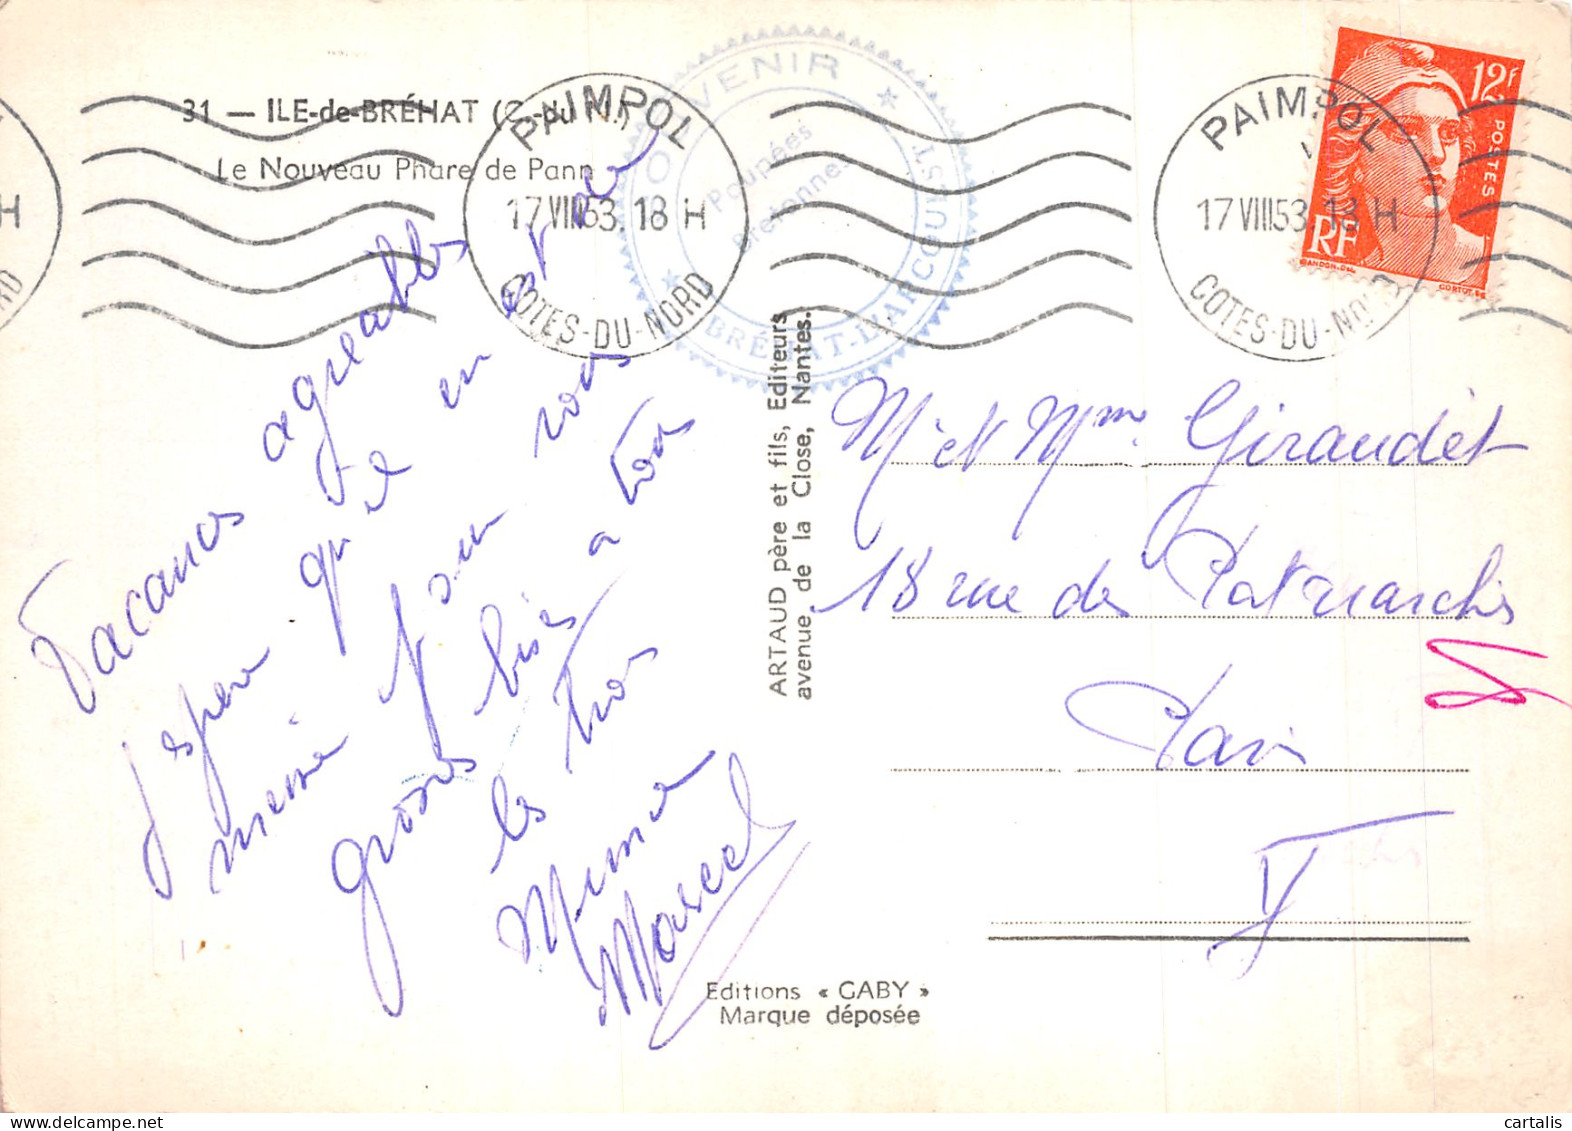 31 — ILE-de-BRÉHAT (C.-du-N.)
Le Nouveau Phare de Pann
PAIMPOL
17 VIII 53. 18 H
COTES-DU-NORD
SOUVENIR
Poupées
Bretonnes
BRÉHAT-L'ARCOUEST
PAIMPOL
17 VIII 53. 18 H
COTES-DU-NORD
12F
POSTES
RF
GANDON-Del.
CORTOT.sc
Vacances agréables
J'espère qu'il en est de
même pour vous
grosses bises a tous
les trois
Mimie
Marcel
ARTAUD père et fils, Editeurs
avenue de la Close, Nantes.
Mr et Mme Giraudet
18 rue des Patriarches
Paris
V
Editions « GABY »
Marque déposée
cartalis
delcampe.net